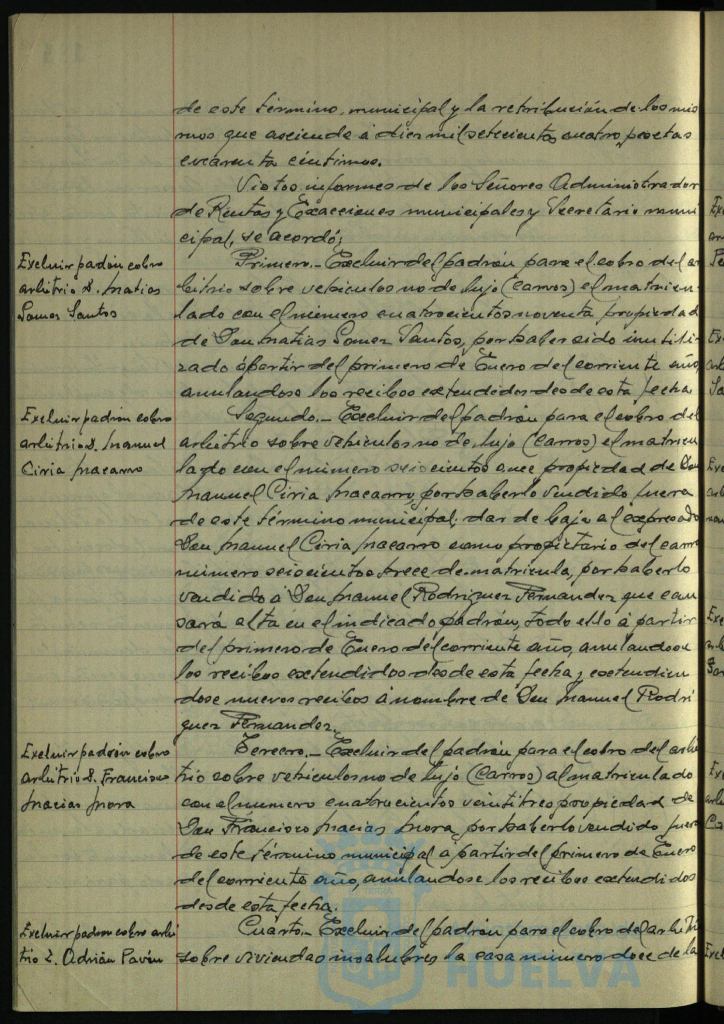 de este término, municipal y la retribución de los mis
mos que asciende á diez mil setecientas cuatro, pesetas
cuarenta céntimos.
Vistos, informes de los Señores Administrador
de Rentas y Exacciones municipales y Secretario muni
cipal, se acordó;
Excluir padrón cobro
arbitrio D. Matias
Santos
Primero.- Excluir del padrón para el cobro del ar
bitrio sobre vehiculos no de lujo (carros) el matricu
lado con el número cuatrocientos noventa propiedad
de Don Matias Santos, por haber sido inutili
zado á partir del primero de Enero del corriente año,
anulandose los recibos extendidos desde esta fecha
Excluir padrón cobro
arbitrio D. Manuel
Ciria Macarro
Segundo.- Excluir del padrón para el cobro del
arbitrio sobre vehiculos no de lujo (carros) el matricu
lado con el número seiscientos once propiedad de Don
Manuel Ciria Macarro, por haberlo vendido fuera
de este término municipal; dar de baja al expresado
Don Manuel Ciria Macarro como propietario del carro
número seiscientos trece de matricula, por haberlo
vendido á Don Manuel Rodriguez Fernandez que cau
sará alta en el indicado padrón, todo ello á partir
del primero de Enero del corriente año, anulandose
los recibos extendidos desde esta fecha y extendien
dose nuevos recibos á nombre de Don Manuel Rodri
guez Fernandez.
Excluir padrón cobro
arbitrio D. Francisco
Macias Mora
Tercero.- Excluir del padrón para el cobro del arbi
trio sobre vehiculos no de lujo (carros) al matriculado
con el numero cuatrocientos veintitres propiedad de
Don Francisco Macias Mora, por haberlo vendido fuera
de este término municipal á partir del primero de Enero
del corriente año, anulandose, los recibos extendidos
desde esta fecha.
Excluir padron cobro arbi
trio D. Adrián Pavón
Cuarto.- Excluir del padrón para el cobro del arbitrio
sobre viviendas insalubres la casa número doce de la
HUELVA